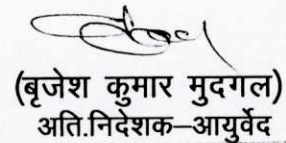 (बृजेश कुमार मुदगल)
अति.निदेशक–आयुर्वेद